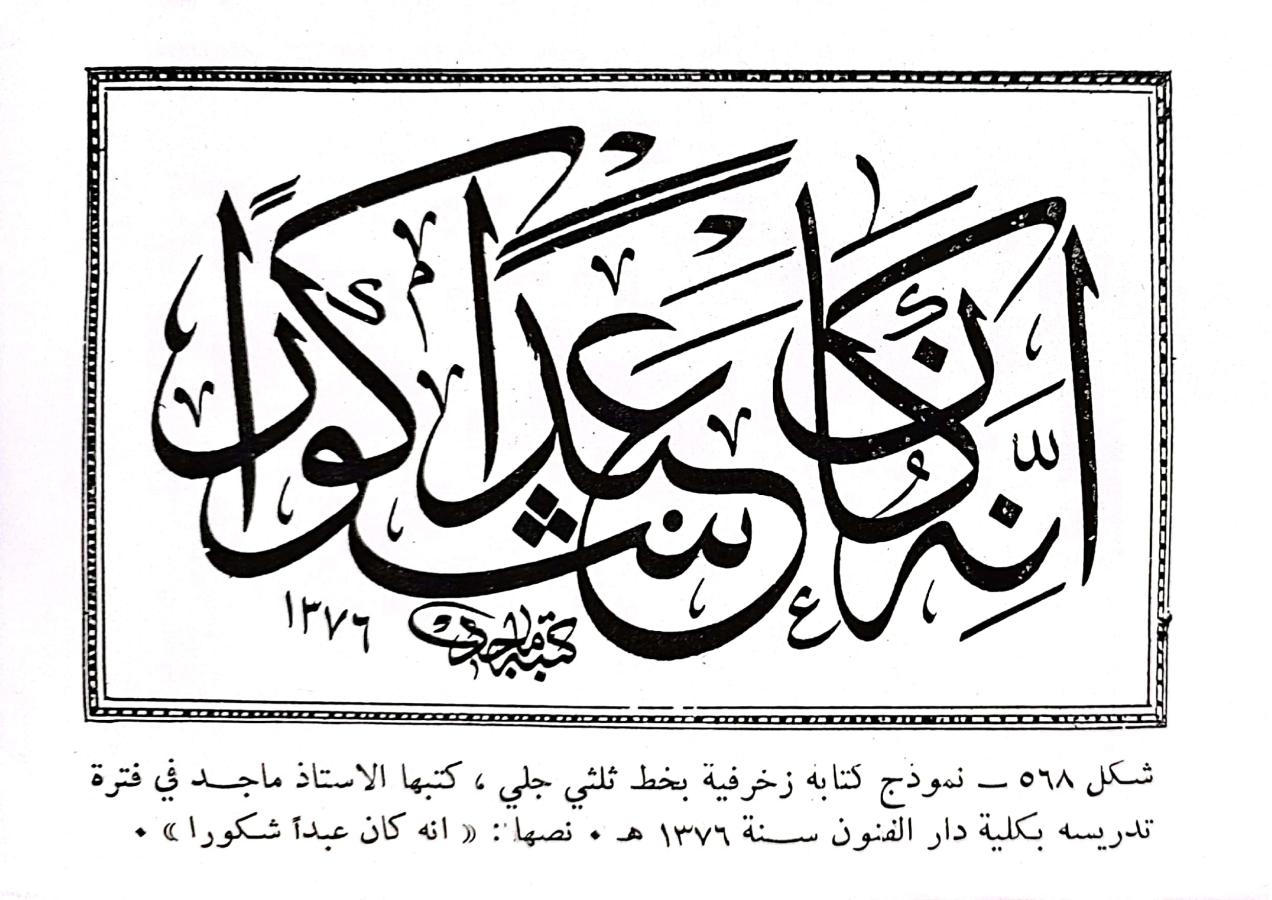 انه كان عبداً شكوراً
كتبه ماجد
١٣٧٦
شكل ٥٦٨ ــ نموذج كتابه زخرفية بخط ثلثي جلي ، كتبها الاستاذ ماجد في فترة
تدريسه بكلية دار الفنون سنة ١٣٧٦ هـ . نصها : « انه كان عبداً شكورا » .